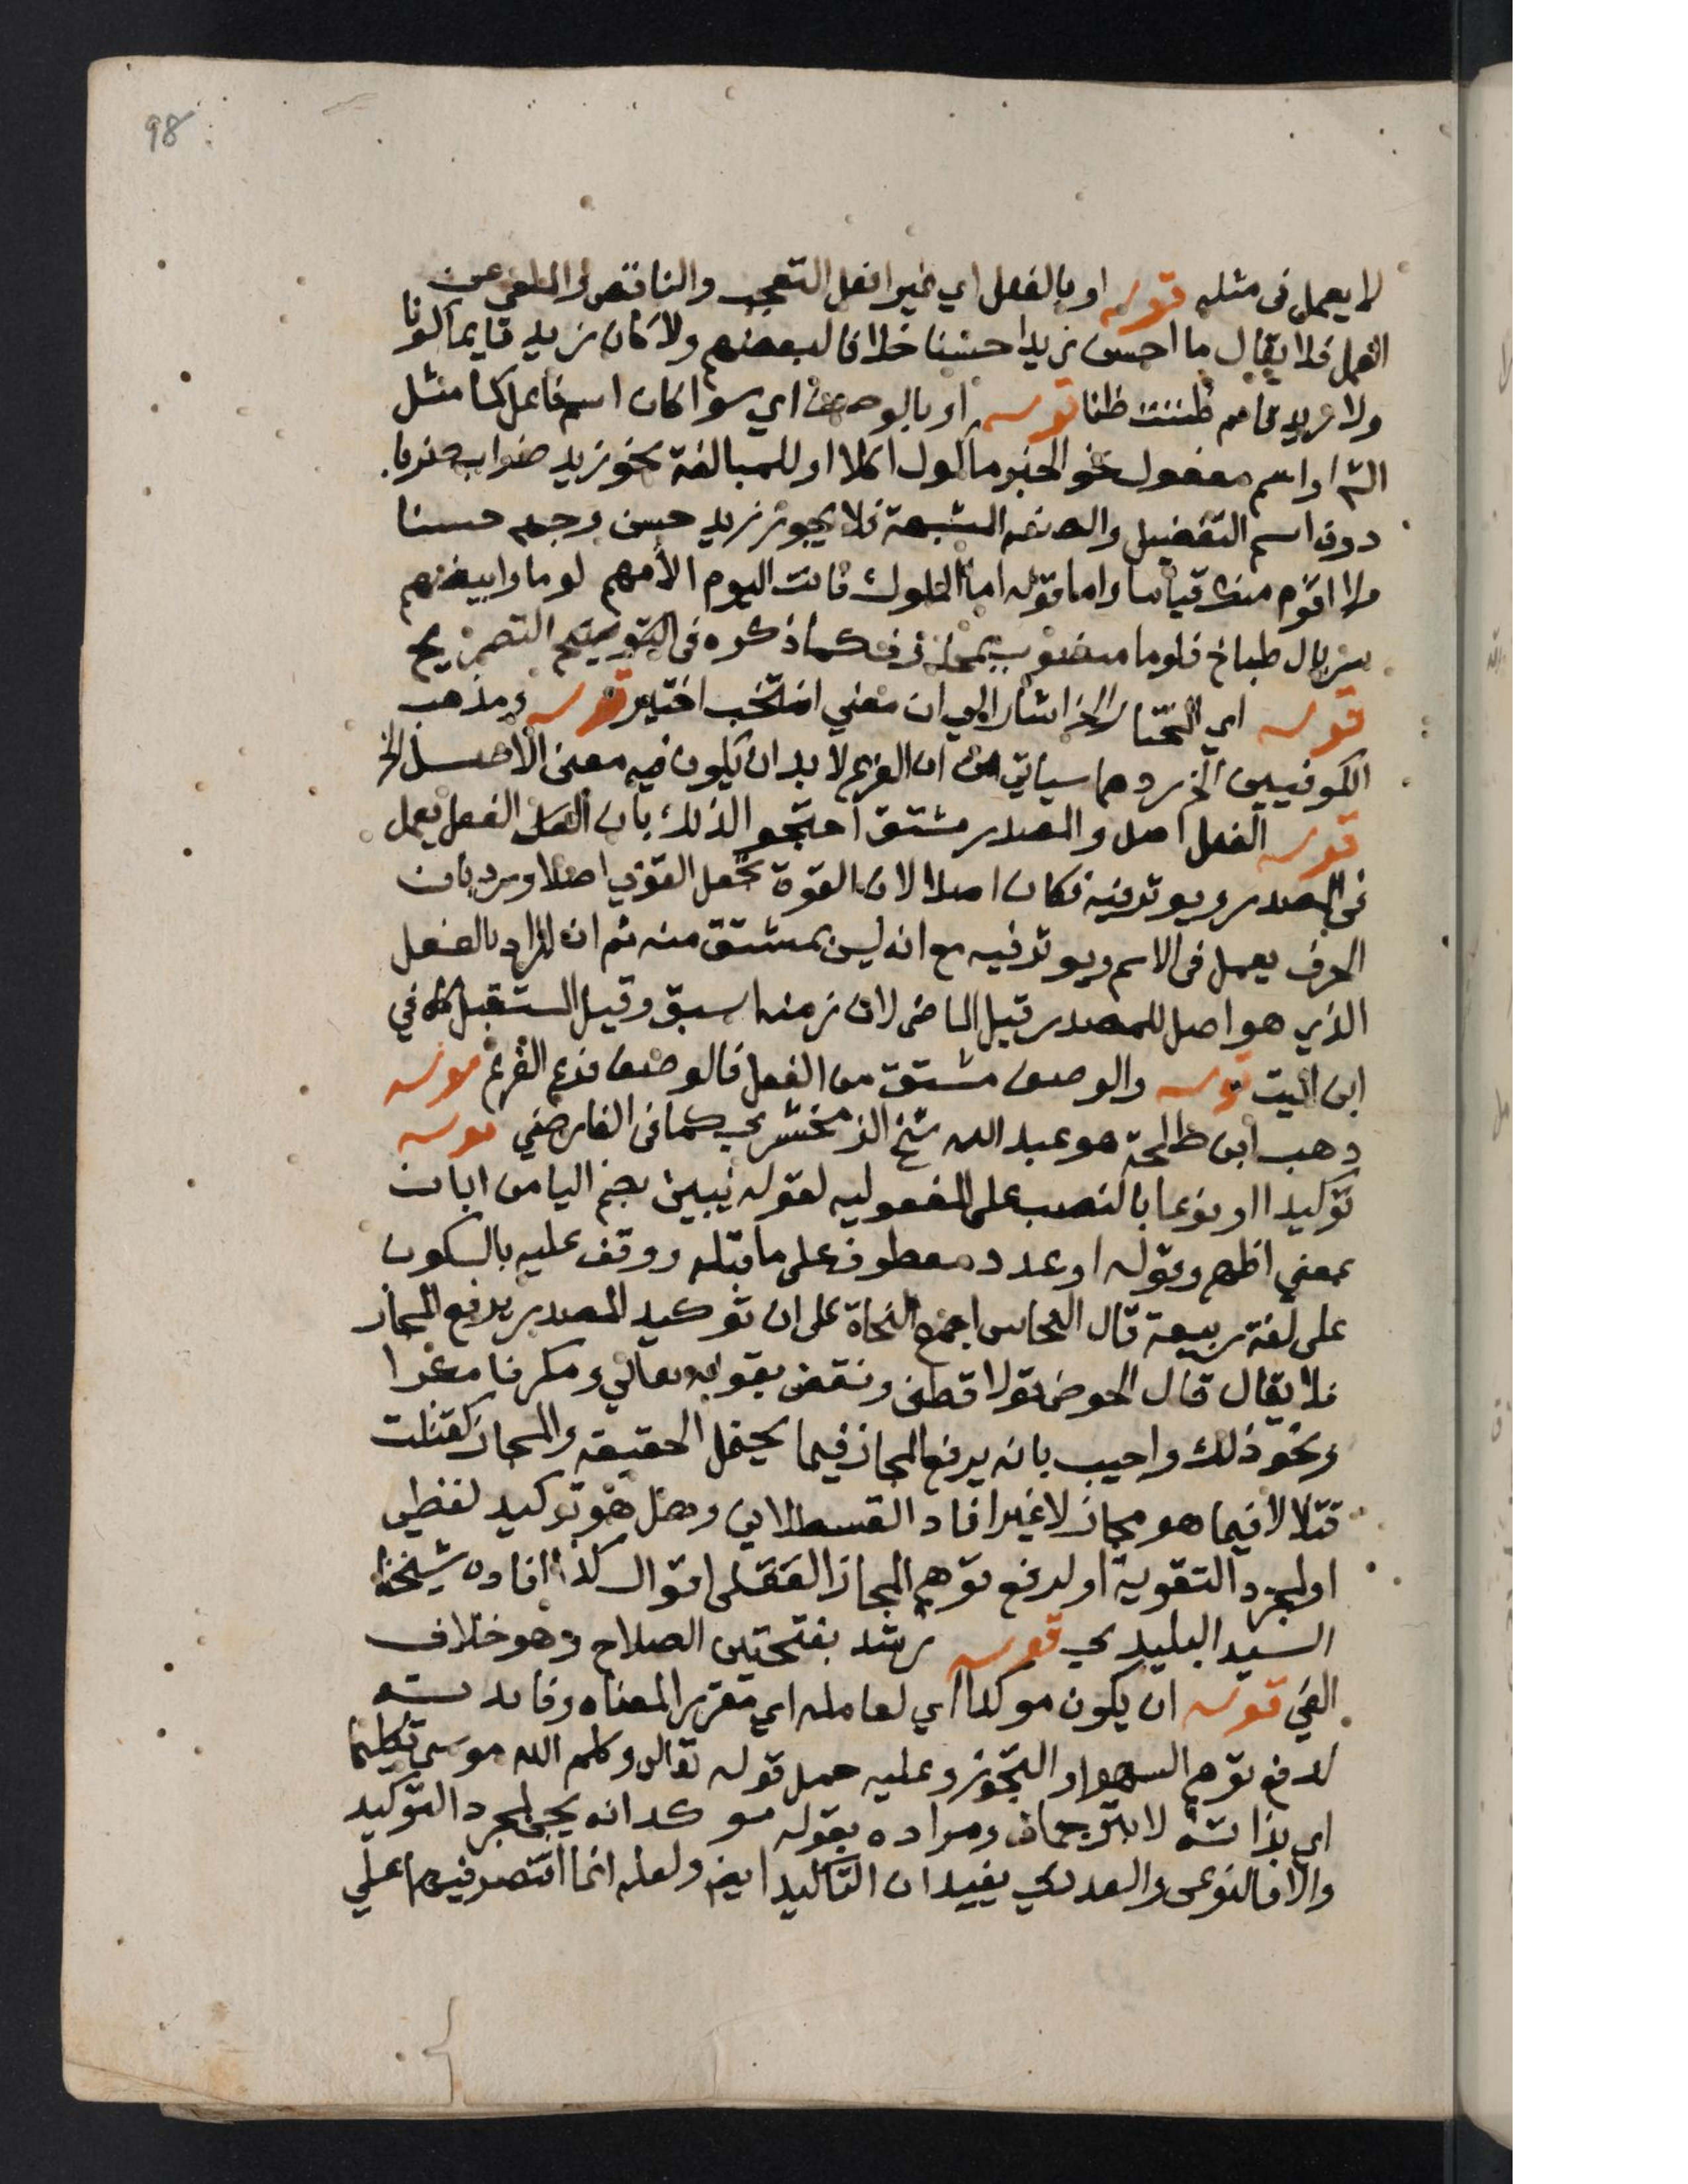 98
لا يعمل فى مثله قوله او بالفعل اي غير افعل التعجب والناقص والملغى عن
العمل فلا يقال ما احسن زيدا حسنا خلافا لبعضهم ولا كان زيد قايما كونا
ولا زيد قايم ظننت ظنا قوله او بالوصف اي سوا كان اسم فاعل كما مثل
الش او اسم مفعول نحو الخبز ماكول اكلا او للمبالغة نحو زيد ضراب ضربا
دون اسم التفضيل والصفة المشبهة فلا يجوز زيد حسن وجهه حسنا
ولا اقوم منك قياما واما قوله اما الملوك فانت اليوم الأمهم لوما وابيضهم
سربال طباخ فلوما منصوب بمحذوف كما ذكره فى التوضيح التصريح
قوله اي انتخب الخ اشار الي ان معني انتخب اختير قوله ومذهب
الكوفيين الخ رد بما سياتي من ان الفرع لا بد ان يكون فيه معنى الاصل الخ
قوله الفعل اصل والمصدر مشتق احتجو الذلك بان الفعل يعمل
فى المصدر ويوثر فيه فكان اصلا لان القوة تجعل القوي اصلا ورد بان
الحرف يعمل فى الاسم ويوثر فيه مع انه ليس بمشتق منه ثم ان المراد بالفعل
الذي هو اصل للمصدر قيل الماضى لان زمنه اسبق وقيل المستقبل كما في
ابن الميت قوله والوصف مشتق من الفعل فالوصف فرع الفرع قوله
وهب ابن طلحة هو عبد الله شيخ الزمخشري كما فى الفارضي قوله
توكيدا او نوعا بالنصب على المفعوليه لقوله يبين بضم اليا من ابان
بمعني اظهر وقوله او عدد معطوف على ما قبله ووقف عليه بالسكون
على لغة ربيعة قال النحاس اجمع النحاة على ان توكيد المصدر يرفع المجاز
فلا يقال قال الحوض قولا قطنى ونقض بقوله تعالي ومكرنا مكرا
ونحو ذلك واجيب بانه يرفع المجاز فيما يحتمل الحقيقه والمجاز كقتلت
قتلا لا فيما هو مجاز لا غير افاد القسطلاني وهل هو توكيد لفظي
او لمجرد التقوية او لدفع توهم المجاز العقلى اقوال كذا افاده شيخنا
السيد البليدي قوله رشد بفتحتين الصلاح وهو خلاف
الغي قوله ان يكون موكدا اي لعامله اي مقرر المعناه وفايدته
لدفع توهم السهو او التجوز وعليه حمل قوله تعالى وكلم الله موسي تكليما
اي بذاته لا بترجمان ومراده بقوله موكد انه يجى لمجرد التوكيد
والا فالنوعى والعددي يفيدان التاكيد ايض ولعله انما اقتصر فيهما علي